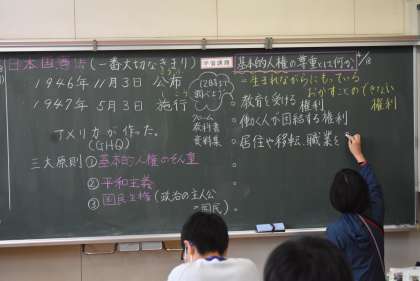 日本国憲法(一番大切なきまり)
1946年11月3日 公布
1947年 5月3日 施行
アメリカが作った。
(GHQ)
三大原則 ①基本的人権のそん重
②平和主義
③国民主権(政治の主人公
=国民)
学習課題
基本的人権の尊重とは何か。
=生まれながらにもっている
おかすことのできない
権利
2時まで
調べよう
クローム
教科書
資料集
○教育を受ける
権利
○働く人が団結する権利
○居住や移転、職業を